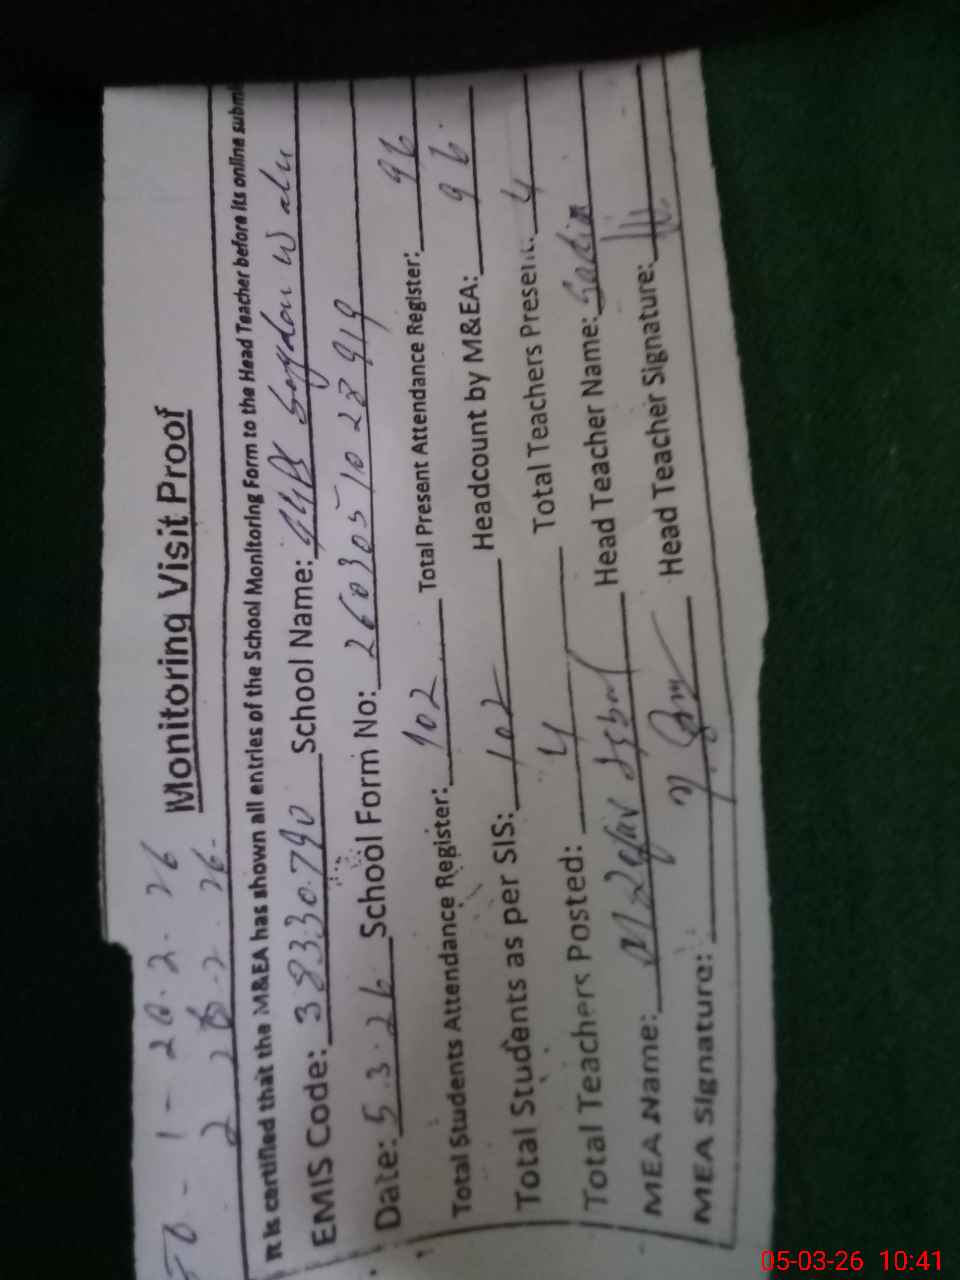 1 - 20.2.26
2 26.2.26.
Monitoring Visit Proof
It is certified that the M&EA has shown all entries of the School Monitoring Form to the Head Teacher before its online submi
EMIS Code: 38330790 School Name: GGPS Walu
Date: 5.3.26 School Form No: 260305102 919
Total Students Attendance Register: 102 Total Present Attendance Register: 96
Total Students as per SIS: 102 Headcount by M&EA: 96
Total Teachers Posted: 4 Total Teachers Present: 4
MEA Name: Head Teacher Name: Sadia
MEA Signature: Head Teacher Signature:
05-03-26 10:41